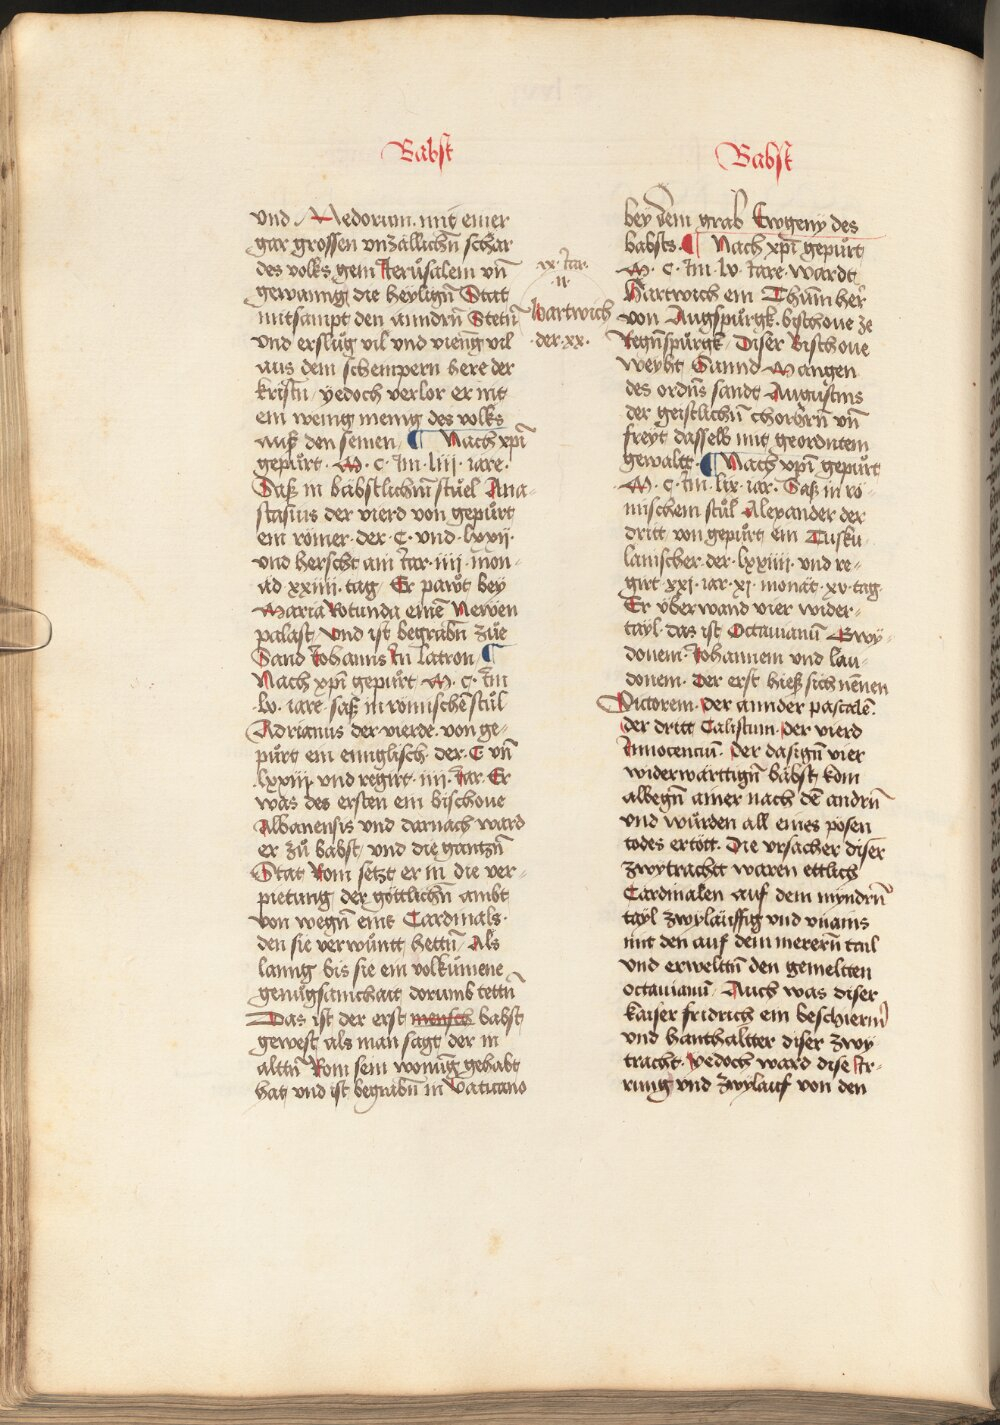 Babst
und Medorum. mit einer
gar grossen vnzällichñ schar
des volks gem Jerůsalem vñ
gewanng die heyligñ Stat
mitsampt den anndrñ Stetñ
vnd erslůg vil vnd vieng vil
aus dem schempern here der
kristñ / yedoch verlor er nit
ein wenig menig des volks
auß den seinen / ¶ Nach xp̃i
gepůrt · M · C · Im · liii · iare ·
Saß in bäbstlichm̃ stůel Ana-
stasius der vierd von gepůrt
ein römer · der · C · vnd · lxxij ·
vnd herscht ain Jar · iiii · mon-
ad xxiiii · tag / Er pawt bey
Maria Rotunda eine͂ Newen
palast / vnd ist begrabñ zůe
Sand Johanns In latron / ¶
Nach xp̃i gepůrt · M · C · Im
· lv · iare · saß in römische͂ stůl
Adrianus der vierde · von ge-
půrt ein eninglisch · der · C vñ
lxxiij · vnd regirt · iiij · Jar · Er
was des ersten ein bischoue
Albanensis vnd darnach ward
er zů babst / vnd die gantzñ
Stat Rom setzt er in die ver-
pietung der göttlichñ ambt
von wegñ eins Cardinals ·
den sie verwůntt hettñ / Als
lanng bis sie ein volkůmene
genůgsamchait dorumb tettñ
Das ist der erst mensch babst
gewest als man sagt der in
alttñ Rom sein wonũg gehabt
hat vnd ist begrabñ in Vaticano
xx · Jar ·
· ii ·
Hartwich
· der · xx ·
Babst
bey dem grab Ewgeny des
babsts · ¶ Nach xp̃i gepůrt
M · C · Im · lv · Jare · wardt
Hartwich ein Thůmher
von Augspůrgk · bischoue ze
Regñspůrgk / Diser Bischoue
weyht Sannd Mangen
des ordñs sandt Augustins
der geistlichñ chorhrñ vñ
freyt dasselb mit geordntem
gewaltt · ¶ Nach xp̃i gepůrt
· M · C · Im · lix · iar · Saß in rö-
mischem stůl Alexander der
dritt von gepůrt ein Tusku-
lanischer · der · lxxiiii · vnd re-
girt · xxi · iar · xj · monat · xv · tag ·
Er vberwand vier wider-
tayl · das ist Octauianũ Gwy-
donem · Johannem vnd lau-
donem · Der erst hieß sich nẽnen
Victorem · der annder pascalẽ ·
der dritt Calistum · der vierd
Innocencium · Der dasigñ vier
widerwärttigñ bäbst kom
albegñ ainer nach dẽ andrñ
vnd wurden all eines pösen
todes ertött · Die vrsacher diser
zwytrachtt waren ettlich
Cardinalen auf dem myndrñ
tayl zwyläuffig vnd vnains
mit den auf dem merern tail
vnd erweltñ den gemeltten
octauianũ / Auch was diser
kaiser fridrich ein beschierm̃
vnd hanthaltter diser zwy
tracht · yedoch ward dise Ir-
rung vnd zwylauf von den